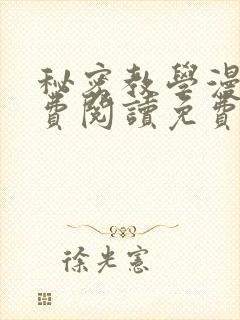 秘密教學漫
費閱讀免費
徐光憲